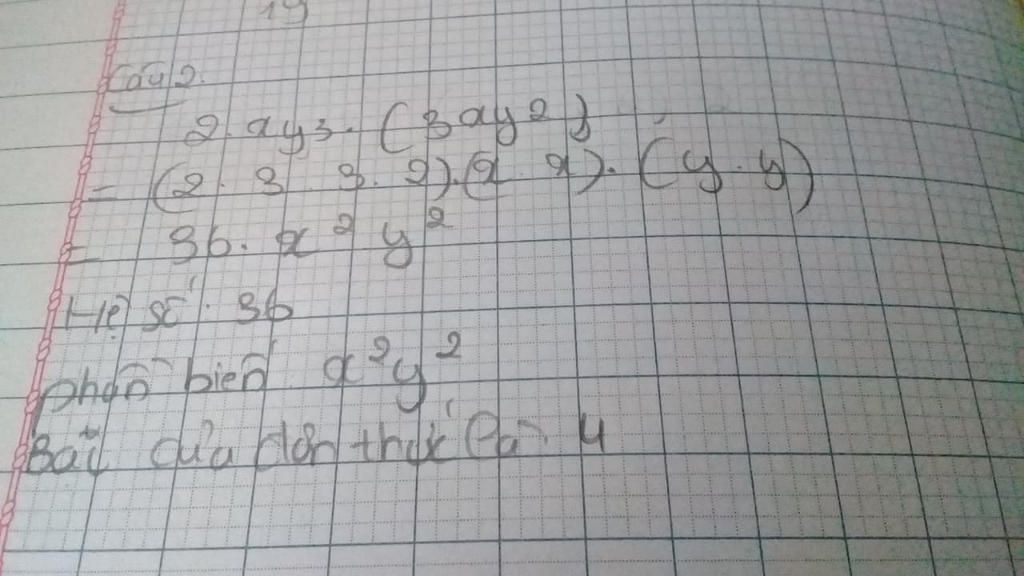 19
Câu 2.
2. xy3. (3xy2)
= (2. 3. 3. 2).(x. x). (y. y)
= 36. x² y²
Hệ số: 36
phần biến x²y²
Bậc của đơn thức là: 4